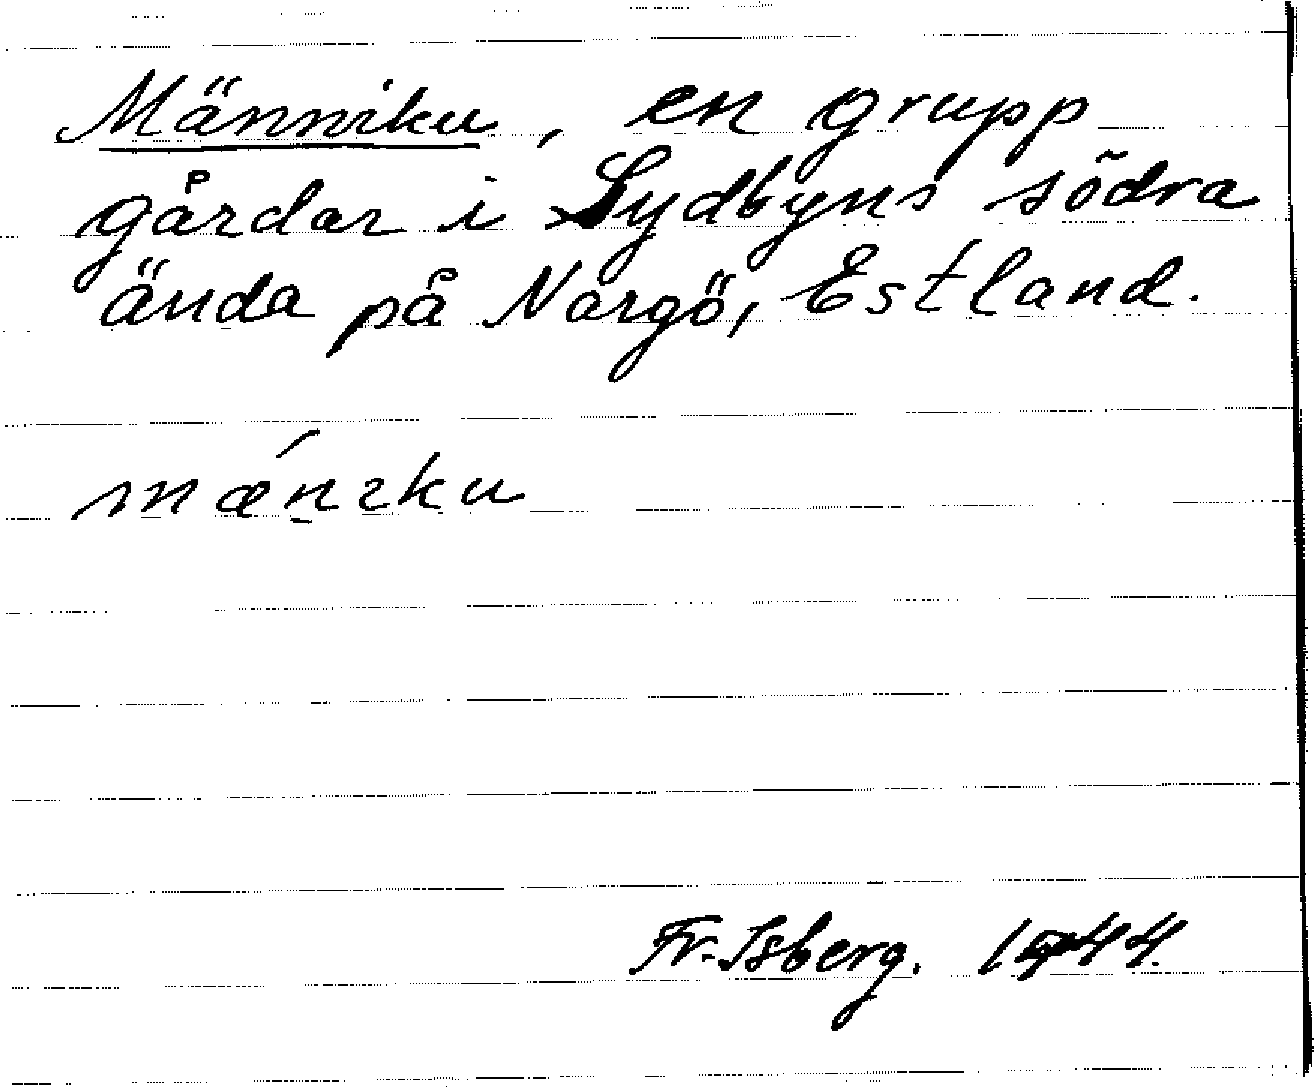 Männiku, en grupp
gårdar i Sydbyns södra
ända på Nargö, Estland.
mǽn̠ıku
Fr. Isberg. 1944.